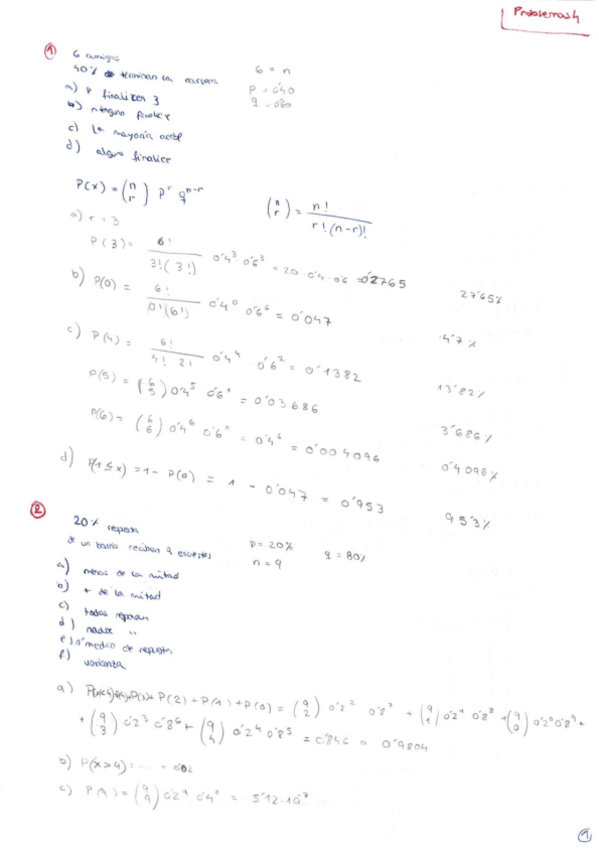 Problemas 4
1
6 amigos
40% terminan la carrera
6 = n
p = 0'40
q = 0'60
a) p finalizen 3
b) ninguno finalice
c) la mayoría acabe
d) alguno finalice
P(x) = (n r) p^r q^(n-r)
(n r) = n! / r! (n-r)!
a) r = 3
P(3) = 6! / 3! (3!) 0'4³ 0'6³ = 20 · 0'4 · 0'6 = 0'2765 27'65%
b) P(0) = 6! / 0! (6!) 0'4⁰ 0'6⁶ = 0'047 4'7%
c) P(4) = 6! / 4! 2! 0'4⁴ · 0'6² = 0'1382 13'82%
P(5) = (6 5) 0'4⁵ 0'6¹ = 0'03686 3'686%
P(6) = (6 6) 0'4⁶ 0'6⁰ = 0'4⁶ = 0'004096 0'4096%
d) P(1 ≤ x) = 1 - P(0) = 1 - 0'047 = 0'953 95'3%
2
20% respuesta
de un barrio reciban 9 encuestas
p = 20%
n = 9
q = 80%
a) menos de la mitad
b) + de la mitad
c) todas
d) nadie "
e) nº medio de respuestas
f) varianza
a) P(3) + P(2) + P(1) + P(0) = (9 2) 0'2² 0'8⁷ + (9 1) 0'2¹ 0'8⁸ + (9 0) 0'2⁰ 0'8⁹ +
+ (9 3) 0'2³ 0'8⁶ + (9 4) 0'2⁴ 0'8⁵ = 0'9804
b) P(x>4) = ... = 0'02
c) P(9) = (9 9) 0'2⁹ = 5'12·10⁻⁷
1